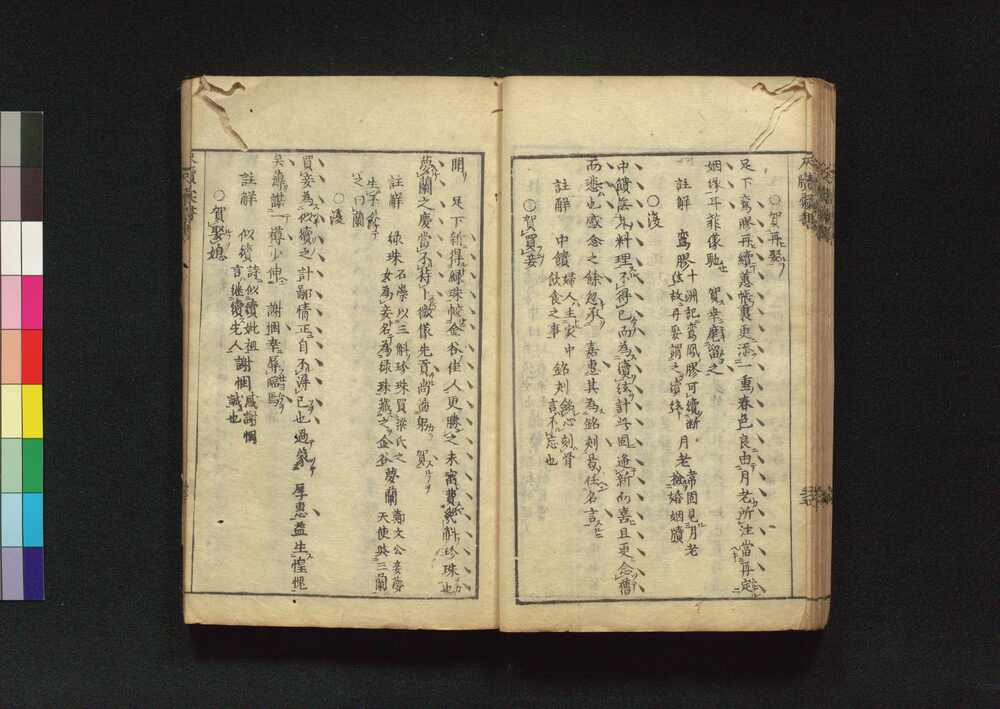 ○賀再娶
足下鸞膠再續蕙帳裏更添一重春色良由月老所注當再定
姻緣耳菲儀馳 賀幸麾留之
註解 鸞膠 十洲記鸞鳳膠可續斷弦故再娶謂之續絃 月老 韋固見月老檢婚姻牘
○復
中饋無人料理不得已而為續弦計此固逢新而喜且更念舊
而悲也感念之餘忽承 嘉惠其為銘刻曷任名言
註解 中饋 婦人主於中飲食之事 銘刻 銘心刻骨言不忘也
○賀買妾
聞 足下新得綠珠較金谷佳人更勝之未審費幾斛珍珠也
夢蘭之慶當不待卜微儀先貢尚容躬 賀
註解 綠珠 石崇以三斛珍珠買梁氏之女為妾名為綠珠藏之金谷 夢蘭 鄭文公妾夢天使與三蘭
生子名之曰蘭
○復
買妾為似續之計鄙情正自不得已也過蒙 厚惠益生惶愧
矣謹謀一樽少伸 謝悃幸辱臨
註解 似續 詩似續妣祖言繼續先人 謝悃 感謝悃誠也
○賀娶媳